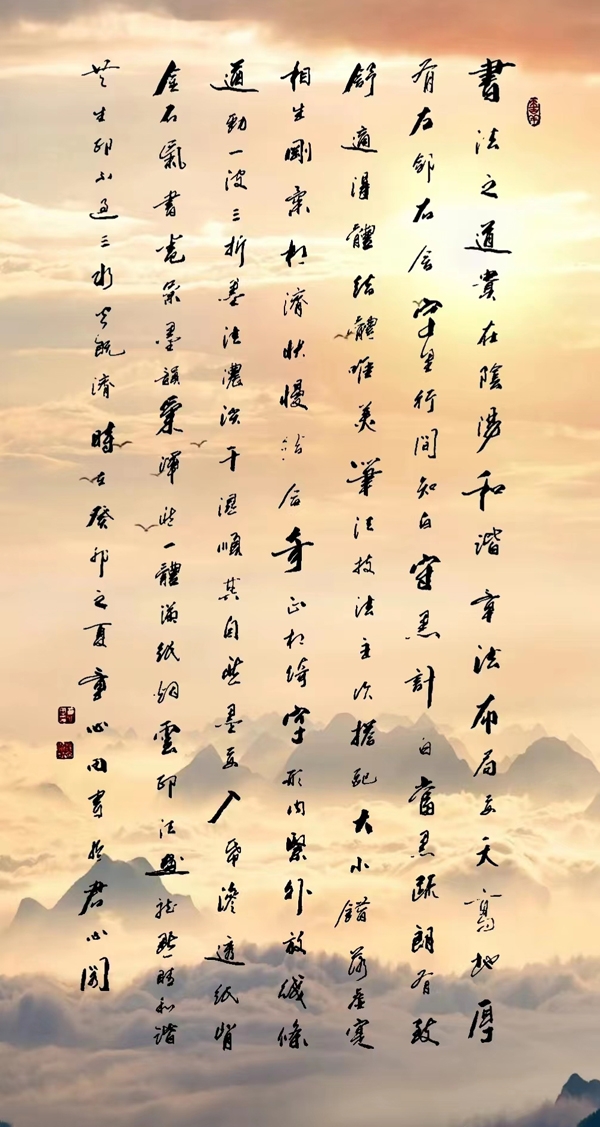 書法之道貴在陰陽和諧章法布局要天高地厚
有左鄰右舍字里行間知白守黑計白當黑疏朗有致
舒適得體結體唯美筆法技法主次搭配大小錯落虛實
相生剛柔相濟快慢結合奇正相倚字形内緊外放綫條
遒勁一波三折墨法濃淡干濕順其自然墨要入帋滲透紙背
金石氣書卷氣墨韻氣渾然一體滿紙烟雲印法畫龍點睛和諧
共生印不過三水火既濟時在癸卯之夏童心田書於君心閣